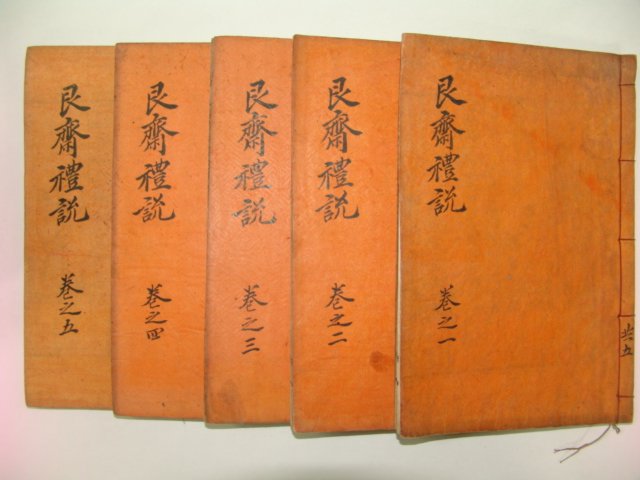 艮齋禮説
卷之一
共五
艮齋禮説
卷之二
艮齋禮説
卷之三
艮齋禮説
卷之四
艮齋禮説
卷之五